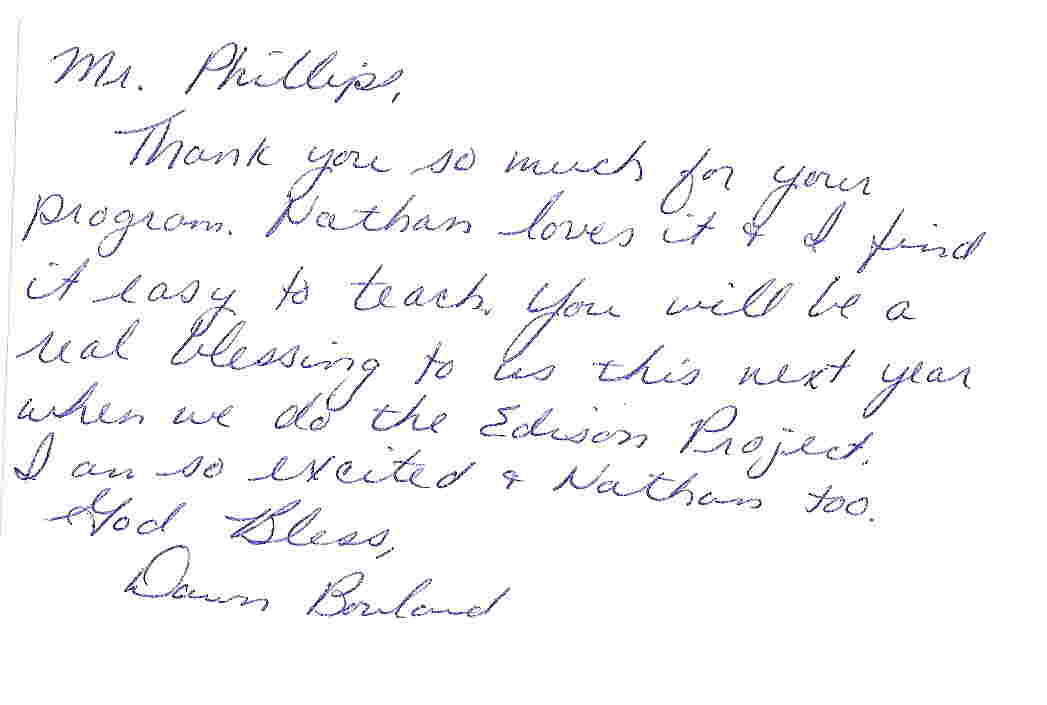 Mr. Phillips,
Thank you so much for your
program. Nathan loves it & I find
it easy to teach. You will be a
real blessing to us this next year
when we do the Edison Project.
I am so excited & Nathan too.
God Bless,
Dawn